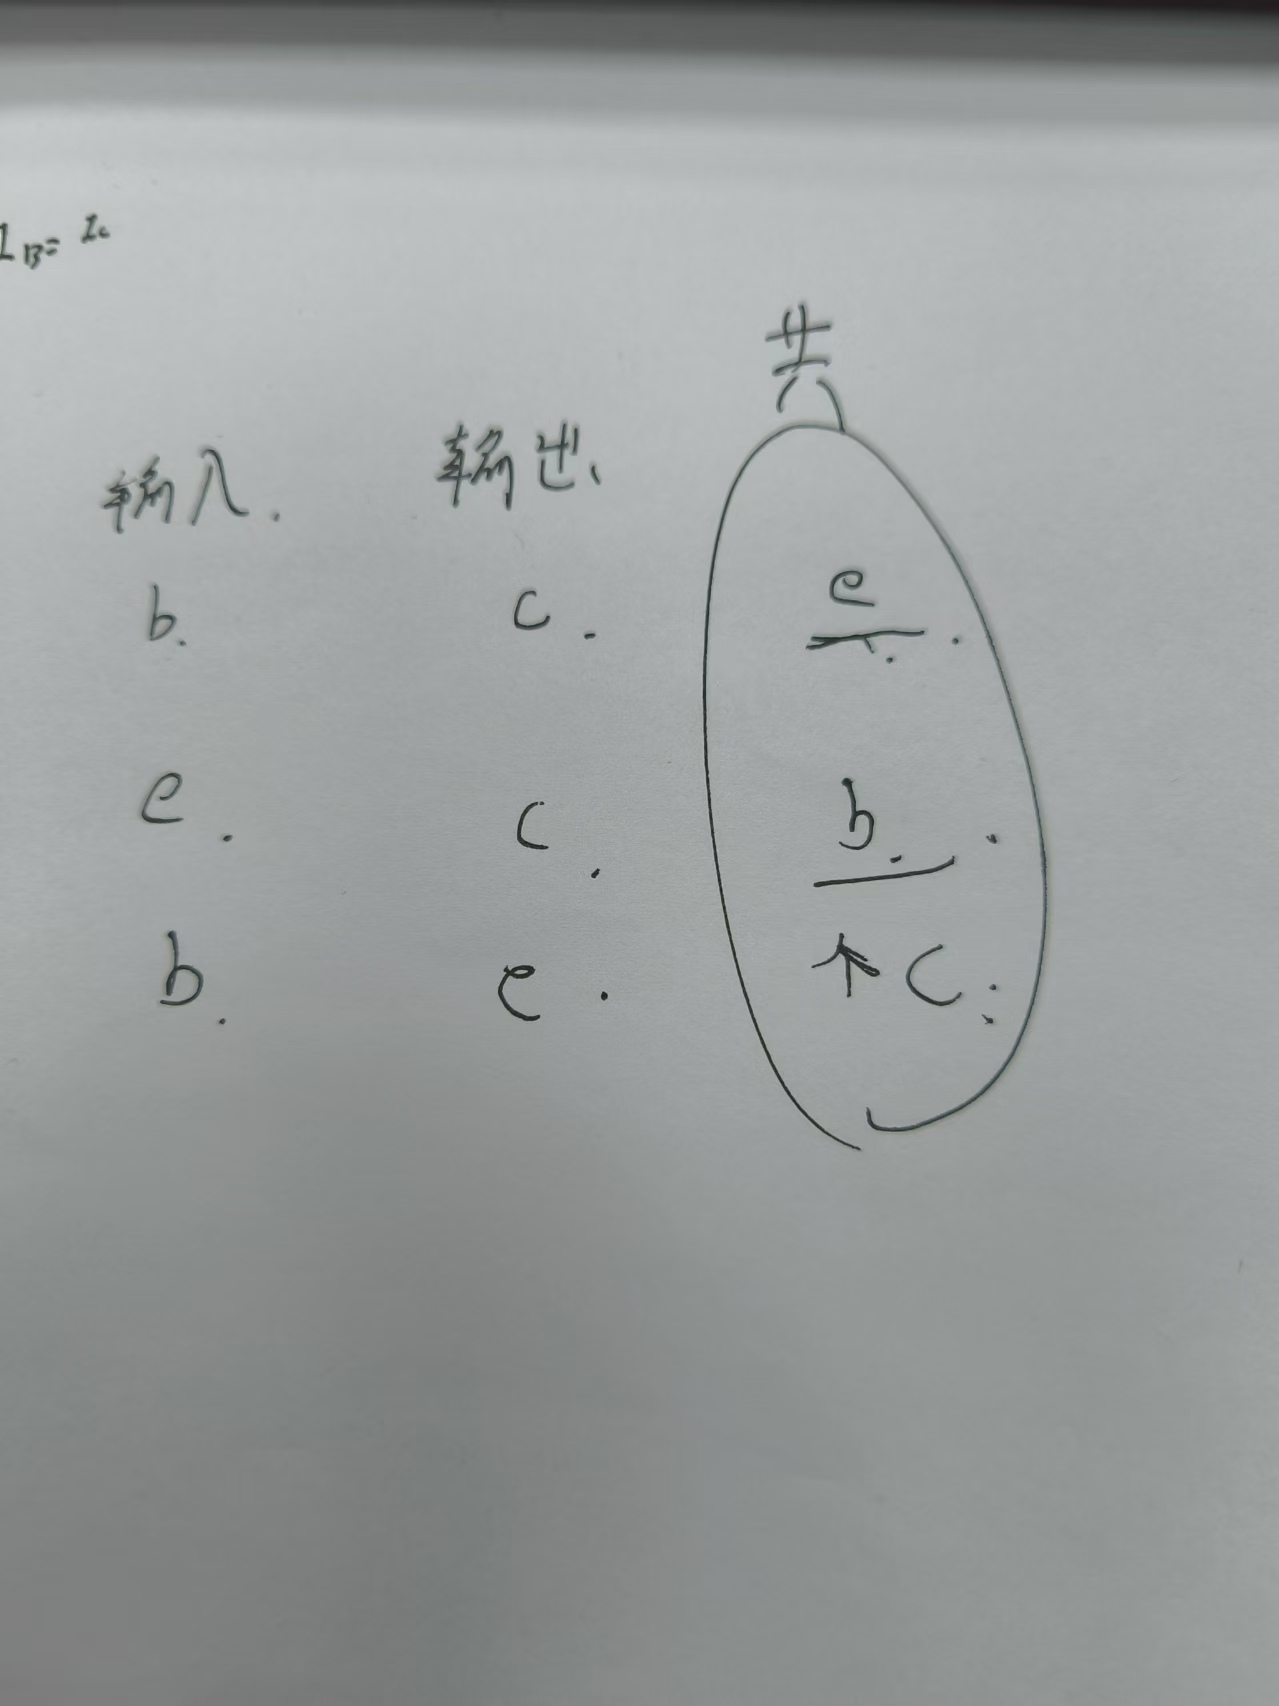 I_B= I_c
共
输入. 输出、
b. c. e.
e. c. b.
b. e. ↑ c.